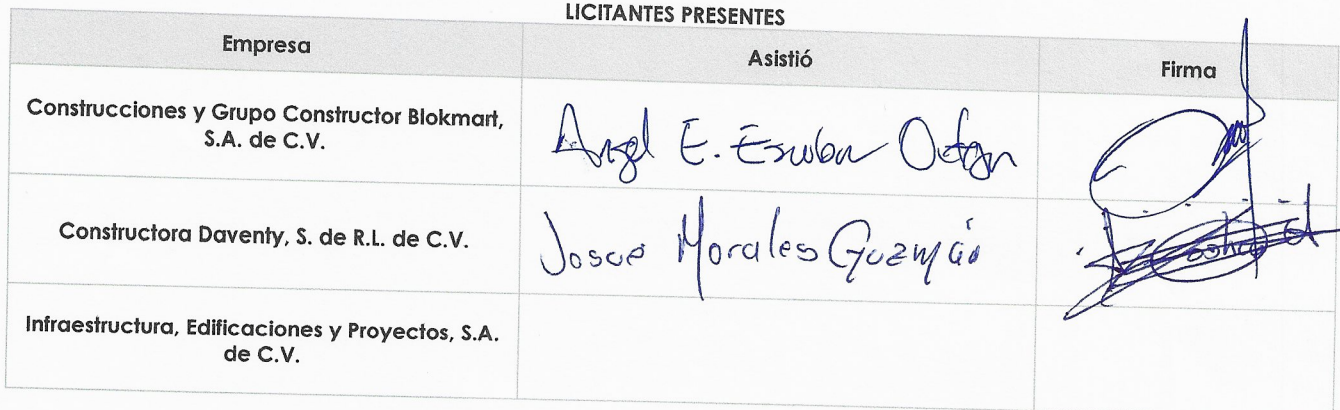 LICITANTES PRESENTES
Empresa Asistió Firma
Construcciones y Grupo Constructor Blokmart,
S.A. de C.V.
Angel E. Escobar
Constructora Daventy, S. de R.L. de C.V.
Josue Morales Guzmán
Infraestructura, Edificaciones y Proyectos, S.A.
de C.V.